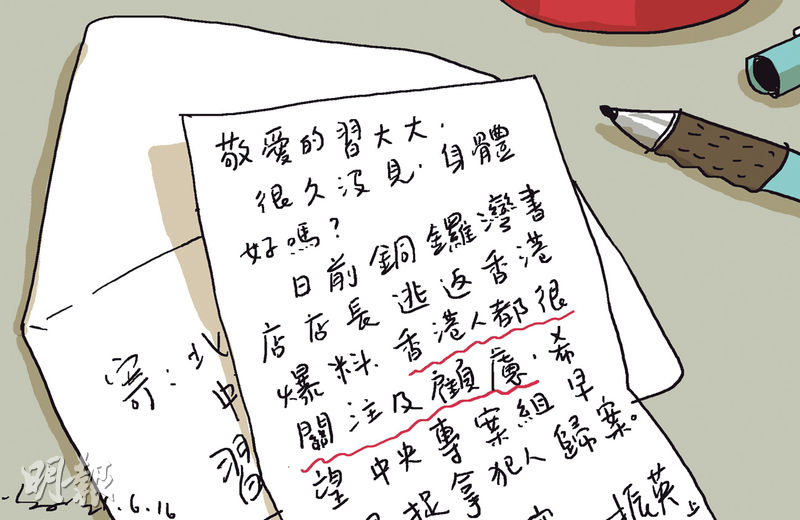 敬愛的習大大，
很久沒見，身體
好嗎？
日前銅鑼灣書
店店長逃返香港
爆料，香港人都很
關注及顧慮，希
望中央專案組早
捉拿犯人歸案。
振英上
寄：北
中
習
明報
.6.16